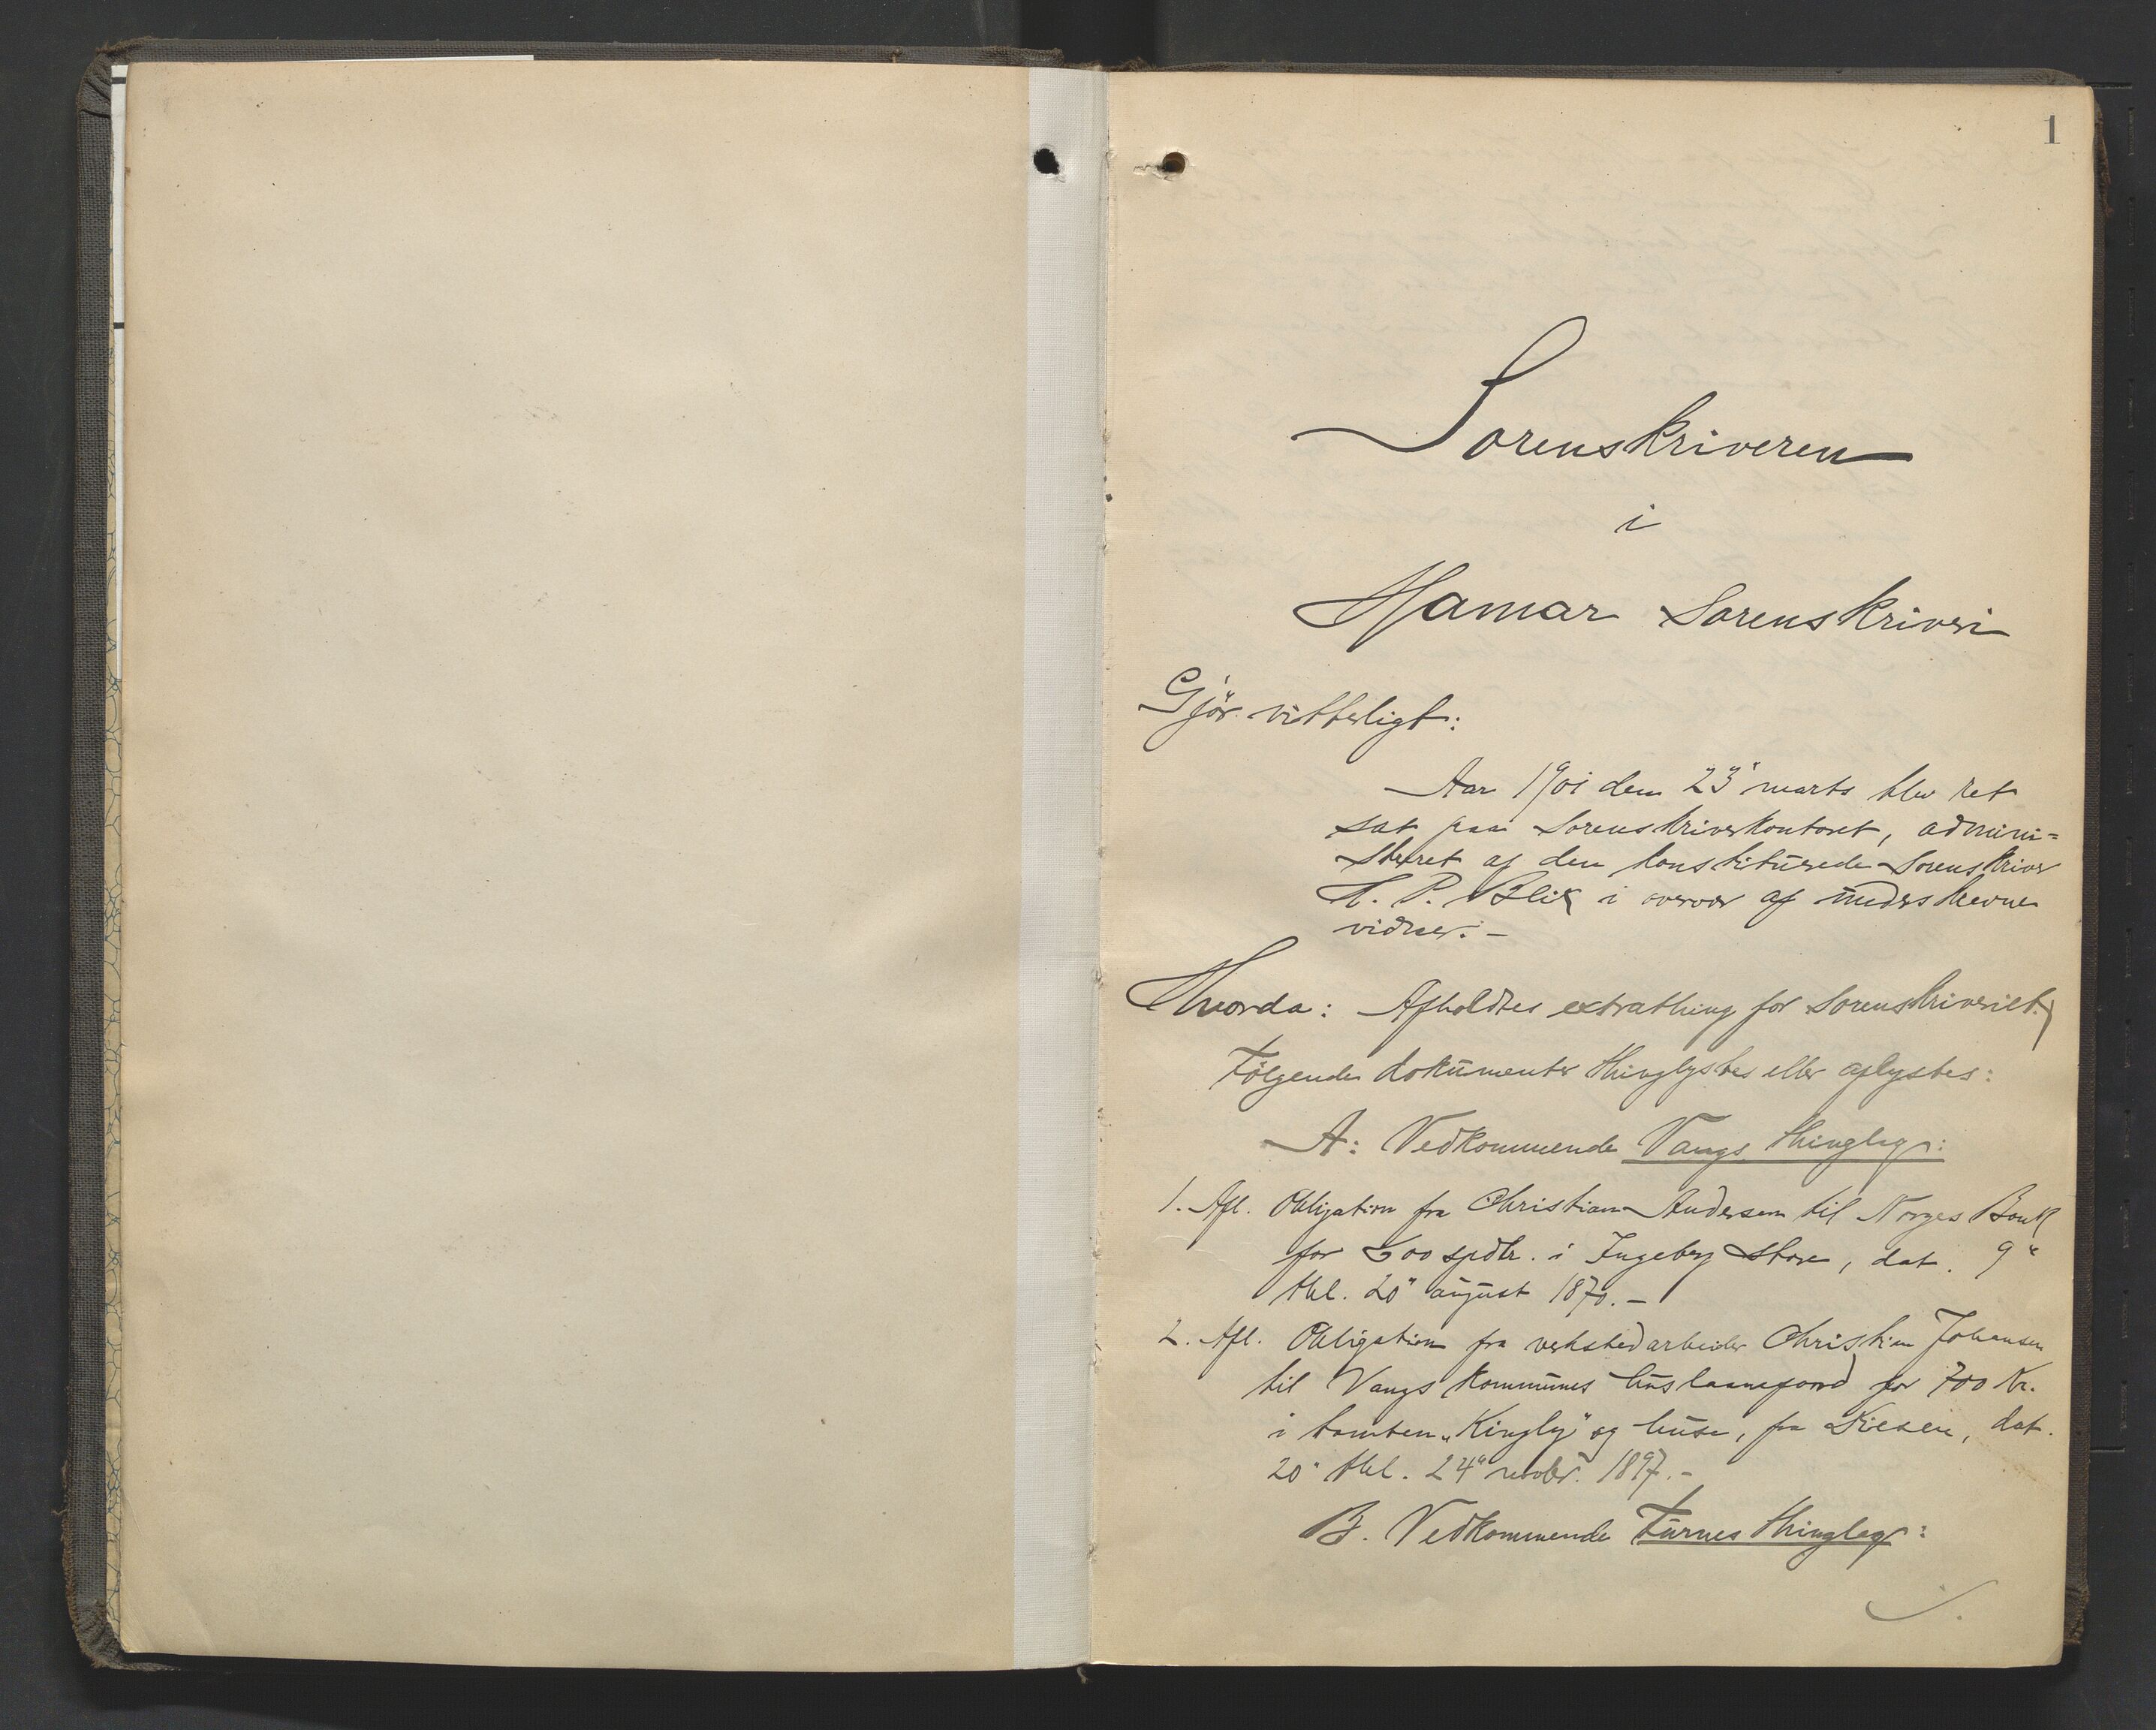 1
Sorenskriveren
i
Hamar Sorenskriveri
Gjør vitterligt:
Aar 1901 den 23" marts blev ret
sat paa Sorenskriverkontoret, admini=
streret af den konstituerede Sorenskriver
H. P. Blix i overvær af underskrevne
vidner. –
Hvorda: Afholdtes extrathing for Sorenskriveriet.
Følgende dokumenter thinglystes eller aflystes:
A: Vedkommende Vangs thinglag:
1. Afl. Obligation fra Christian Andersen til Norges Bank
for 600 spdlr. i Ingeberg store, dat. 9"
thl. 20" august 1870. –
2. Afl. Obligation fra verkstedarbeider Christian Johansen
til Vangs kommunes huslaanefond for 700 Kr.
i tomten „Kingly" og huse, fra, dat.
20" thl. 24" novbr. 1897. –
B. Vedkommende Furnes thinglag: